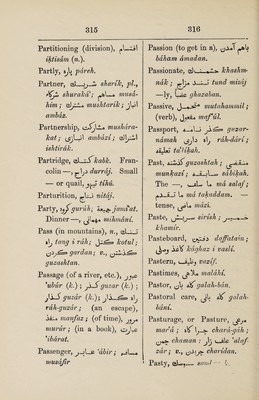 315
Partitioning (division), اقتسام
iķtisám (n.).
Partly, پاره páreh.
Partner, شريك sharík, pl.,
شركا shuraká'; مساهم musá-
him; مشترك mushtarik; انباز
ambáz.
Partnership, مشاركت mushára-
kat; انبازى ambází; اشتراك
ishtirák.
Partridge, كبك kabk. Fran-
colin —, دراج durráj. Small
— or quail, تيهو tíhú.
Parturition, نتاج nitáj.
Party, گروه gurúh; جماعت jamá'at.
Dinner —, مهمانى mihmání.
Pass (in mountains), n., تنگ
راه tang i ráh; كتل kotul;
گردن gardan; v., گذشتن
guzashtan.
Passage (of a river, etc.), عبور
'ubúr (k.); گذر guzar (k.);
گذار guzár (k.); راه گذر
ráh-guzár; (an escape),
منفذ manfaz; (of time), مرور
murúr; (in a book), عبارت
'ibárat.
Passenger, عابر 'ábir; مسافر
musáfir
316
Passion (to get in a), بهم آمدن
báham ámadan.
Passionate, خشمناك khashm-
nák; تند مزاج tund mizáj
—ly, غضبا ghazaban.
Passive, متحمل mutahammil;
(verb), مفعل maf'úl.
Passport, گذرنامه guzar-
námah راه دارى ráh-dári;
تعليقه ta'líķah.
Past, گذشته guzashtah; منقضى
munķazi; سابقه sábiķah.
The —, ما سلف má salaf;
ما تقدم má taķaddam. —
tense, ماضى mázi.
Paste, سريش sirísh; خمير
khamír.
Pasteboard, دفتين daffatain;
كاغذ مقوا
Pastern, وظيف vazíf.
Pastimes, ملاهى maláhí.
Pastor, گله بان golah-bán.
Pastoral care, گله بانى golah-
bání.
Pasturage, or Pasture, مرعى
mar'á; چراگاه chará-gáh;
چمن chaman; علف زار 'alaf-
zár; v., چريدن charídan.
Pasty,